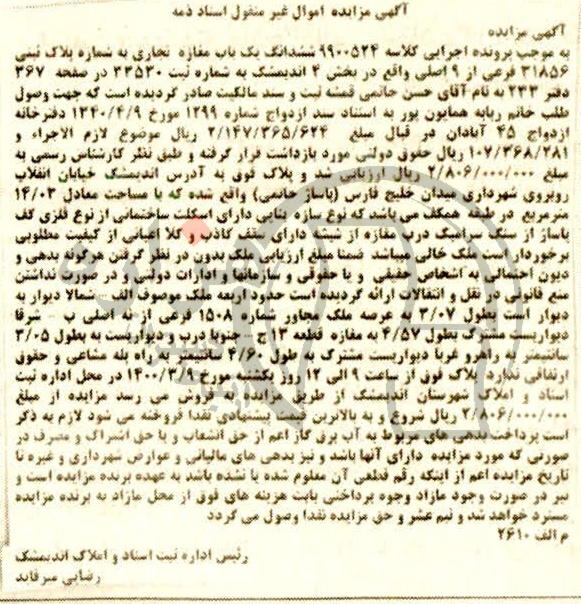 آگهی مزایده اموال غیر منقول اسناد ذمه
آگهی مزایده
به موجب پرونده اجرایی کلاسه ۹۹۰۰۵۲۴ ششدانگ یک باب مغازه تجاری به شماره پلاک ثبتی
۳۱۸۵۶ فرعی از ۹ اصلی واقع در بخش ۴ اندیمشک به شماره ثبت ۳۳۵۳۰ در صفحه ۳۶۷
دفتر ۲۳۳ به نام آقای حسن حاتمی قمشه ثبت و سند مالکیت صادر گردیده است که جهت وصول
طلب خانم ربابه همایون پور به استناد سند ازدواج شماره ۱۲۹۹ مورخ ۱۳۴۰/۴/۹ دفترخانه
ازدواج ۴۵ آبادان در قبال مبلغ ۲/۱۴۷/۳۶۵/۶۲۴ ریال موضوع لازم الاجراء و
۱۰۷/۳۶۸/۲۸۱ ریال حقوق دولتی مورد بازداشت قرار گرفته و طبق نظر کارشناس رسمی به
مبلغ ۲/۸۰۶/۰۰۰/۰۰۰ ریال ارزیابی شد و پلاک فوق به آدرس اندیمشک خیابان انقلاب
روبروی شهرداری میدان خلیج فارس (پاساژ حاتمی) واقع شده که با مساحت معادل ۱۴/۰۳
مترمربع در طبقه همکف می باشد که نوع سازه بنایی دارای اسکلت ساختمانی از نوع فلزی کف
پاساژ از سنگ سرامیک درب مغازه از شیشه دارای سقف کاذب و کلا اعیانی از کیفیت مطلوبی
برخوردار است ملک خالی میباشد ضمنا مبلغ ارزیابی ملک بدون در نظر گرفتن هرگونه بدهی و
دیون احتمالی به اشخاص حقیقی و یا حقوقی و سازمانها و ادارات دولتی و در صورت نداشتن
منع قانونی در نقل و انتقالات ارائه گردیده است حدود اربعه ملک موصوف الف - شمالا دیوار به
دیوار است بطول ۳/۰۷ به عرصه ملک مجاور شماره ۱۵۰۸ فرعی از نه اصلی ب - شرقا
دیواریست مشترک بطول ۴/۵۷ به مغازه قطعه ۱۳ ج - جنوبا درب و دیواریست به بطول ۳/۰۵
سانتیمتر به راهرو غربا دیواریست مشترک به طول ۴/۶۰ سانتیمتر به راه پله مشاعی و حقوق
ارتفاقی ندارد پلاک فوق از ساعت ۹ الی ۱۲ روز یکشنبه مورخ ۱۴۰۰/۳/۹ در محل اداره ثبت
اسناد و املاک شهرستان اندیمشک از طریق مزایده به فروش می رسد مزایده از مبلغ
۲/۸۰۶/۰۰۰/۰۰۰ ریال شروع و به بالاترین قیمت پیشنهادی نقدا فروخته می شود لازم به ذکر
است پرداخت بدهی های مربوط به آب برق گاز اعم از حق انشعاب و یا حق اشتراک و مصرف در
صورتی که مورد مزایده دارای آنها باشد و نیز بدهی های مالیاتی و عوارض شهرداری و غیره تا
تاریخ مزایده اعم از اینکه رقم قطعی آن معلوم شده یا نشده باشد به عهده برنده مزایده است و
نیز در صورت وجود مازاد وجوه پرداختی بابت هزینه های فوق از محل مازاد به برنده مزایده
مسترد خواهد شد و نیم عشر و حق مزایده نقدا وصول می گردد
م الف ۲۶۱۰
رئیس اداره ثبت اسناد و املاک اندیمشک
رضایی میرقاید